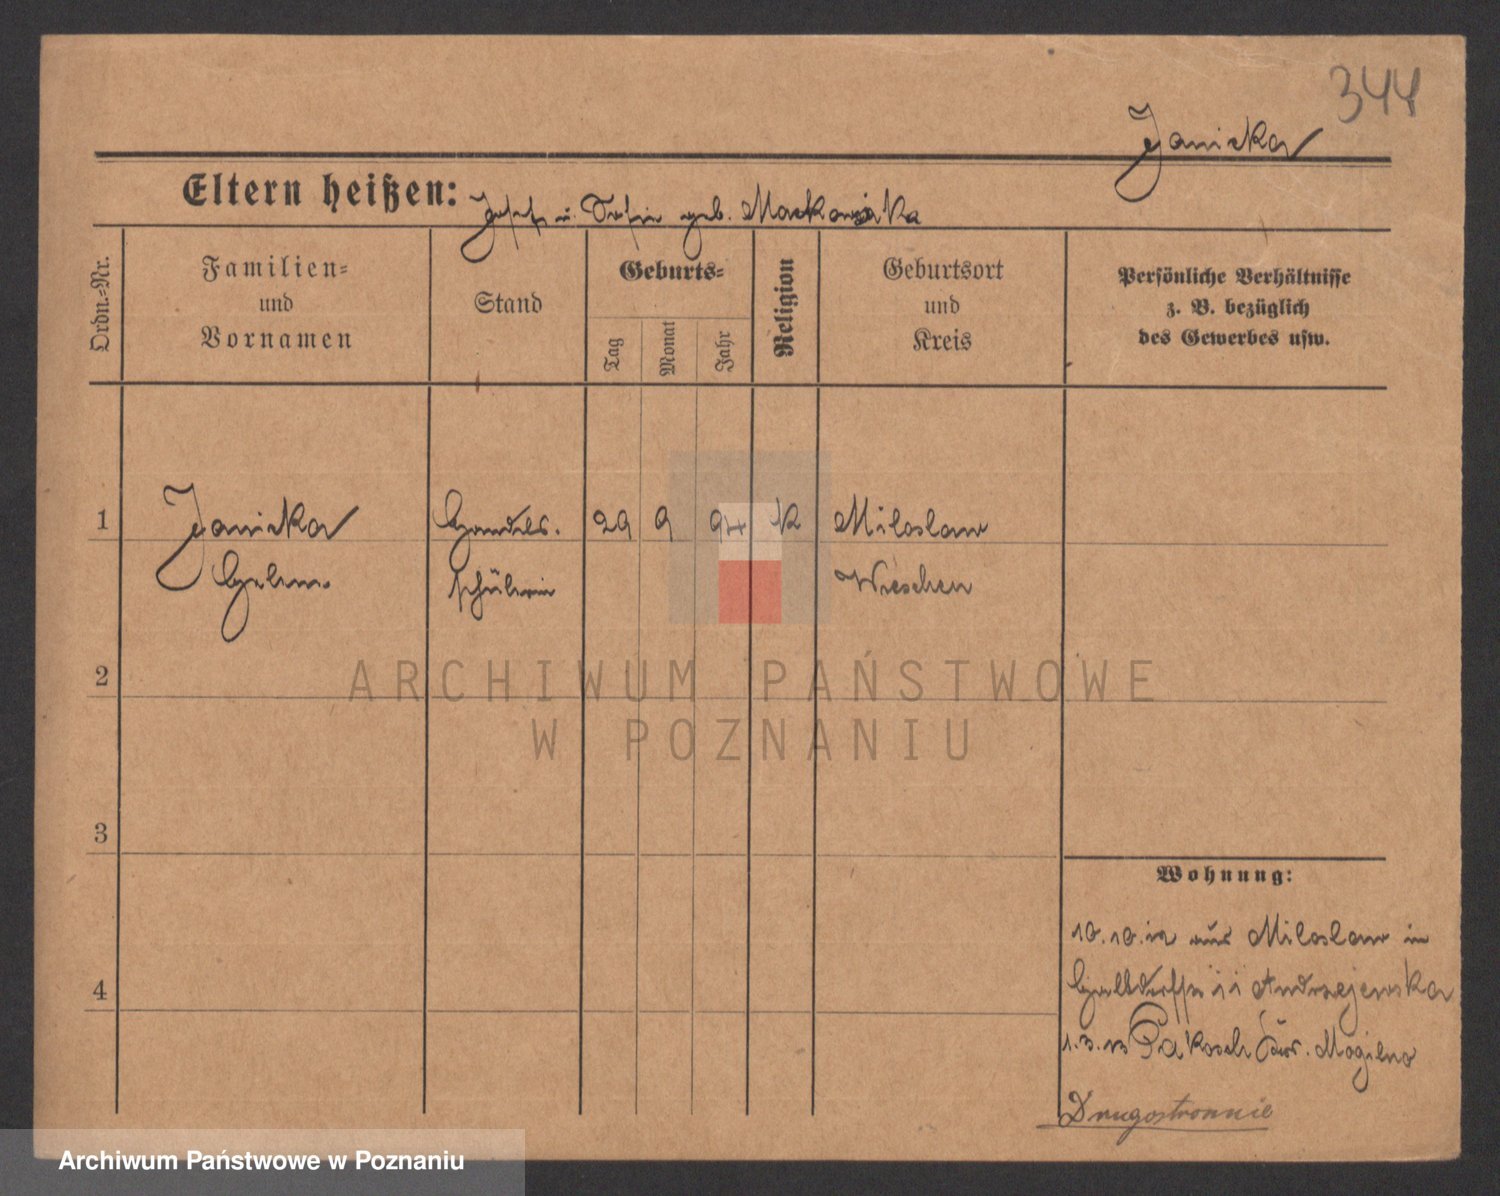 344
Janicka
Eltern heißen: Josef u. Sofie geb. Mackowiaka
Ordn.-Nr.
Familien-
und
Vornamen
Stand
Geburts-
Tag
Monat
Jahr
Religion
Geburtsort
und
Kreis
Persönliche Verhältnisse
z. B. bezüglich
des Gewerbes usw.
1 Janicka Handels. 29 9 97 K Miloslaw
Helene schülerin Wreschen
2
ARCHIWUM PAŃSTWOWE
W POZNANIU
3
Wohnung:
10.10.12 aus Miloslaw in
11 Andrzejewska
4
1.3.13 Pakosch Krs. Mogilno
Drugostronnie
Archiwum Państwowe w Poznaniu